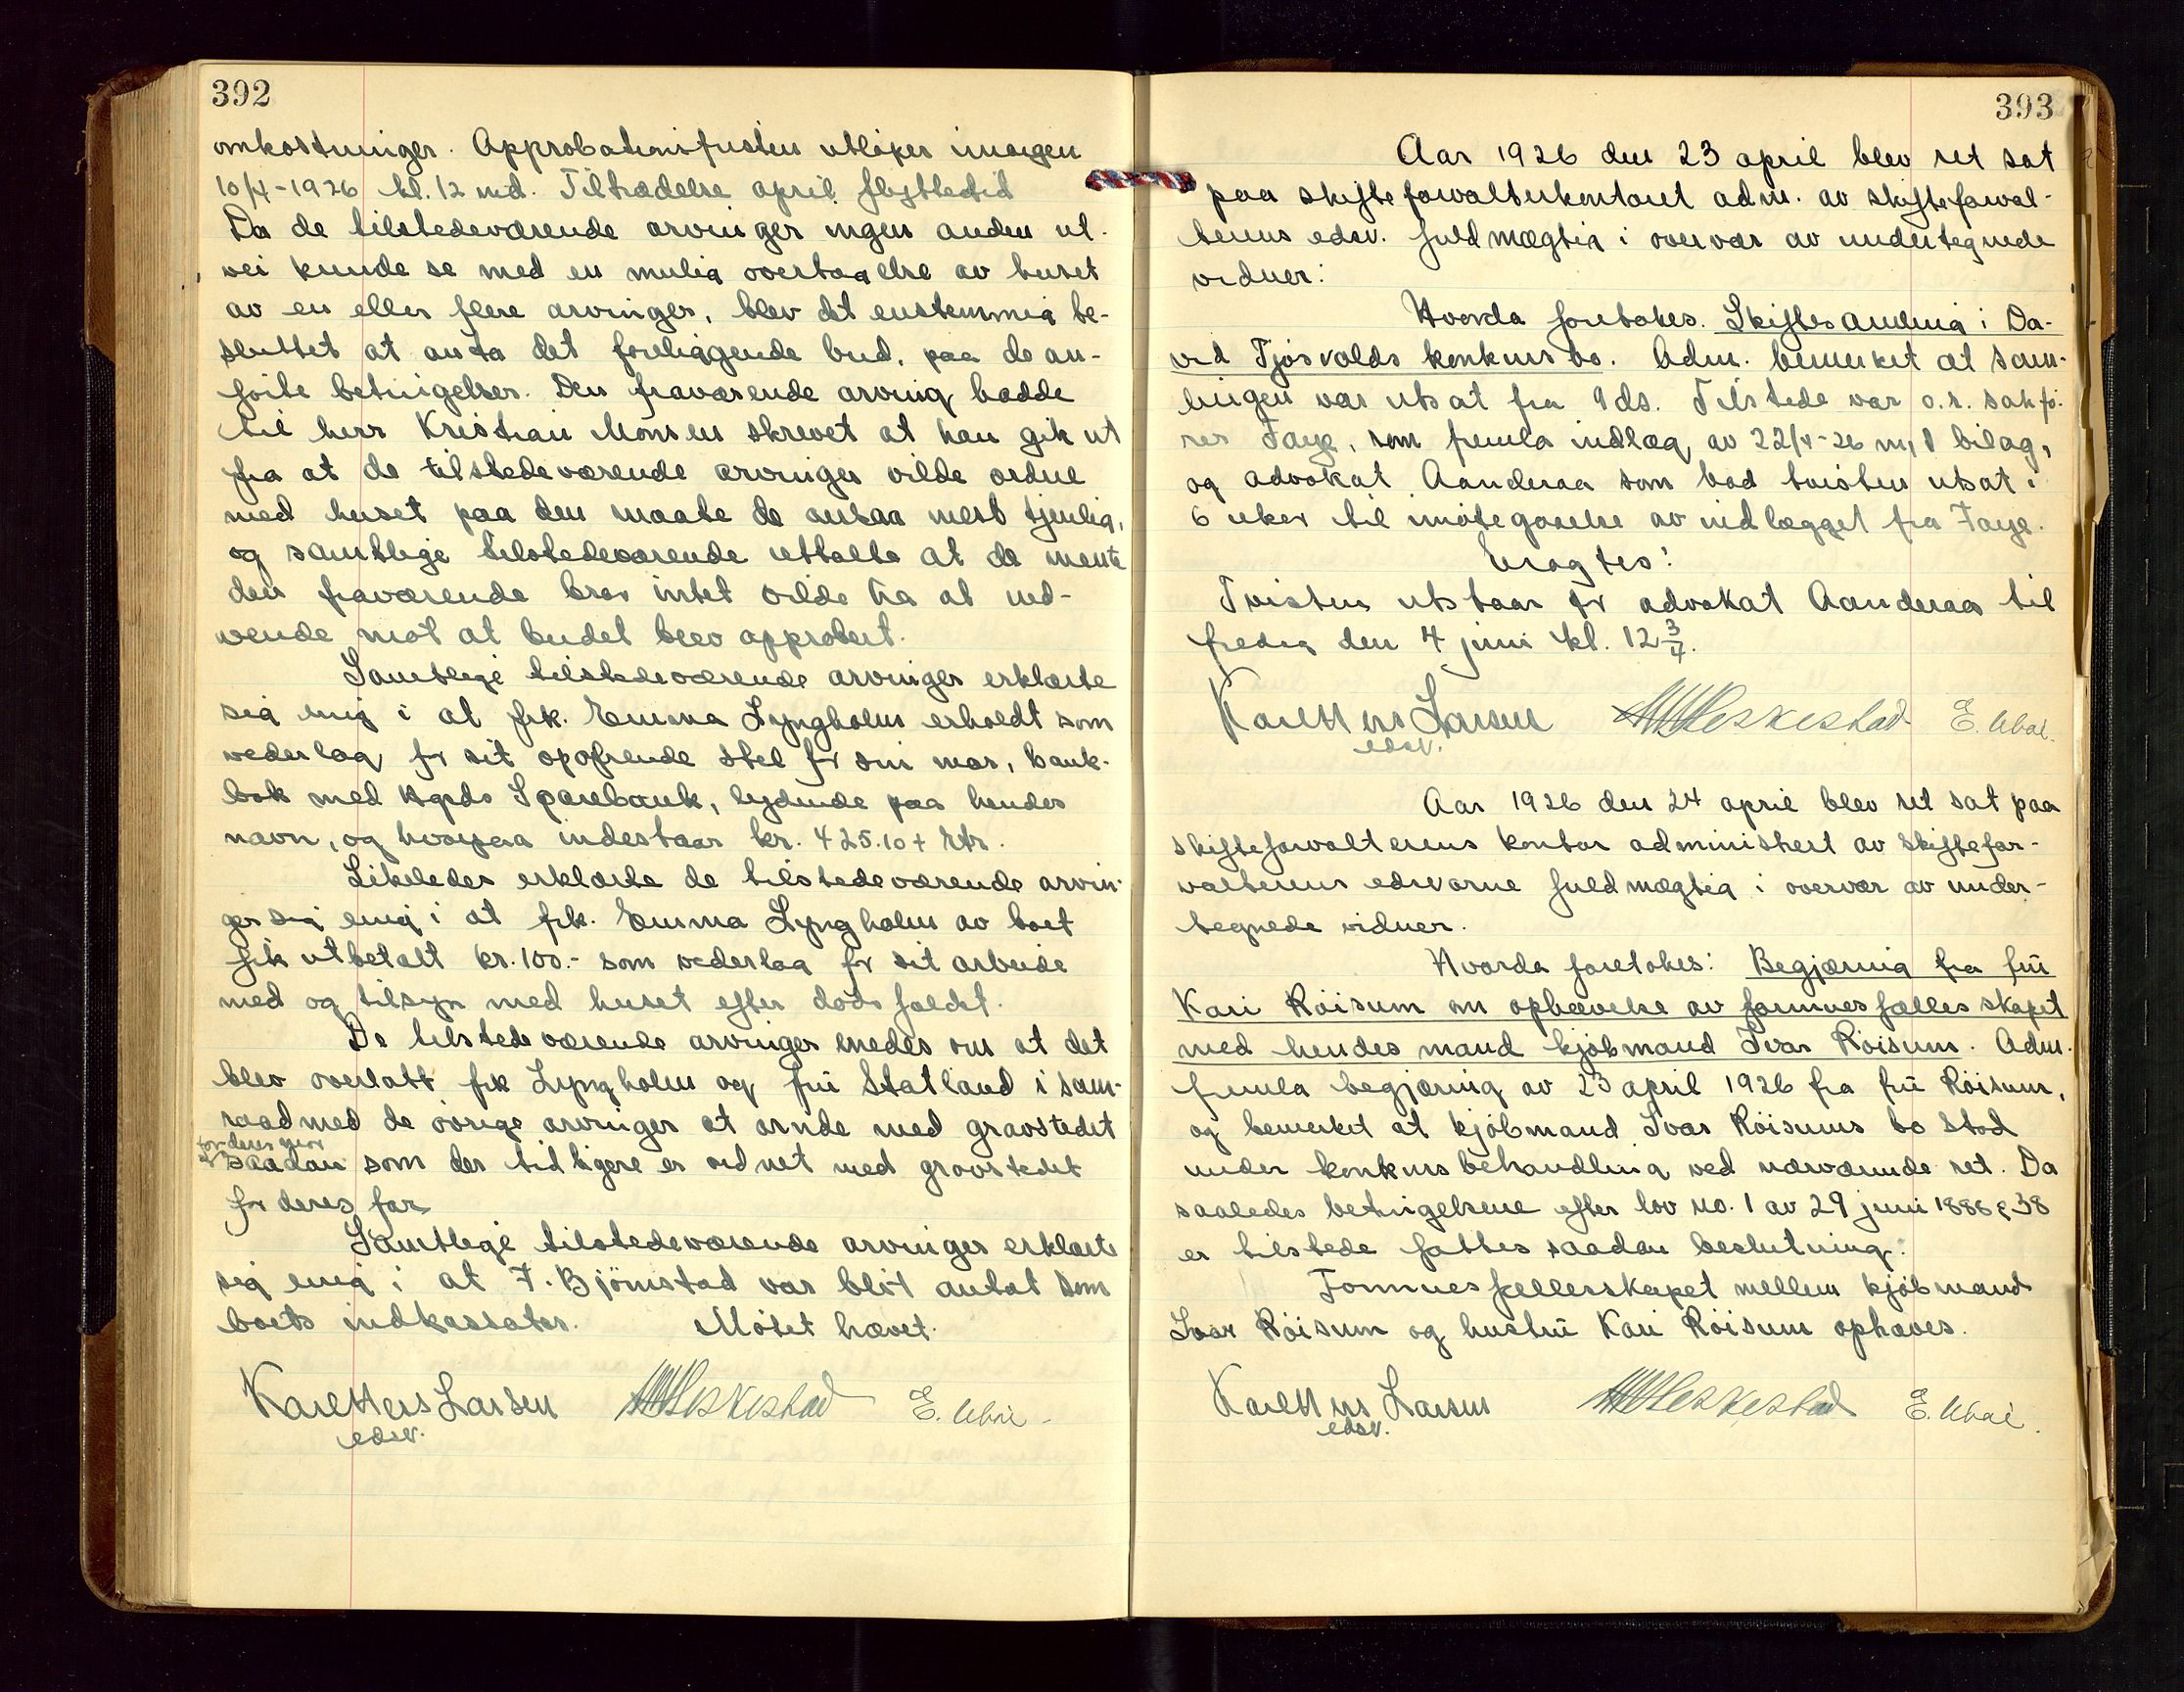 392
omkostninger. Approbationsfristen utløper imorgen
10/4-1926 kl. 12 md. Tiltrædelse april flyttetid
Da de tilstedeværende arvinger ingen anden ut-
vei kunde se med en mulig overtagelse av huset
av en eller flere arvinger, blev det enstemmig be-
sluttet at anta det foreliggende bud, paa de an-
førte betingelser. Den fraværende arving hadde
til herr Kristian Monsen skrevet at han gik ut
fra at de tilstedeværende arvinger vilde ordne
med huset paa den maate de ansaa mest tjenlig,
og samtlige tilstedeværende uttalte at de mente
den fraværende bror intet vilde ha at ind-
vende mot at budet blev approbert.
Samtlige tilstedeværende arvinger erklærte
sig enig i at frk. Emma Lyngholm erholdt som
vederlag for sit opofrende stel for sin mor, bank-
bok med Hgsds Sparebank, lydende paa hendes
navn, og hvorpaa indestaar kr. 425.10 + rtr.
Likeledes erklærte de tilstedeværende arvin-
ger sig enig i at frk. Emma Lyngholm av boet
fik utbetalt kr. 100.- som vederlag for sit arbeide
med og tilsyn med huset efter dødsfaldet.
De tilstedeværende arvinger enedes om at det
blev overlatt frk Lyngholm og frü Statland i sam-
raad med de øvrige arvinger at ornde med gravstedet
for deres mor
saadan som der tidligere er ordnet med gravstedet
for deres far
Samtlige tilstedeværende arvinger erklærte
sig enig i at F. Bjørnstad var blit antat som
boets indkassator. Møtet hævet.
Karl Hers Larsen Heskestad E. Ubøe
edsv.
393
Aar 1926 den 23 april blev ret sat
paa skifteforvalterkontoret adm. av skifteforval-
terens edsv. fuldmægtig i overvær av undertegnede
vidner:
Hvorda foretokes. Skiftesamling i Da-
vid Tjøsvolds konkursbo. Adm. bemerket at sam-
lingen var utsat fra 9 ds. Tilstede var o.r. sakfø-
rer Faye, som fremla indlæg av 22/4-26 m/1 bilag,
og advokat Aanderaa som bad tvisten utsat i
6 uker til imøtegaaelse av indlægget fra Faye.
Eragtes:
Tvisten utstaar for advokat Aanderaa til
fredag den 4 juni kl. 12 3/4.
Karl Hers Larsen Heskestad E. Ubøe.
edsv.
Aar 1926 den 24 april blev ret sat paa
skifteforvalterens kontor administrert av skiftefor-
valterens edsvorne fuldmægtig i overvær av under-
tegnede vidner.
Hvorda foretokes: Begjæring fra frü
Kari Röisum om ophævelse av formuesfællesskapet
med hendes mand kjøbmand Ivar Röisum. Adm.
fremla begjæring av 23 april 1926 fra frü Röisum,
og bemerket at kjøbmand Ivar Röisums bo stod
under konkursbehandling ved nærværende ret. Da
saaledes betingelsene efter lov no. 1 av 29 juni 1888 § 38
er tilstede fattes saadan beslutning:
Formuesfællesskapet mellem kjøbmand
Ivar Röisum og hustrü Kari Röisum ophæves.
Karl Hers Larsen Heskestad E. Ubøe.
edsv.